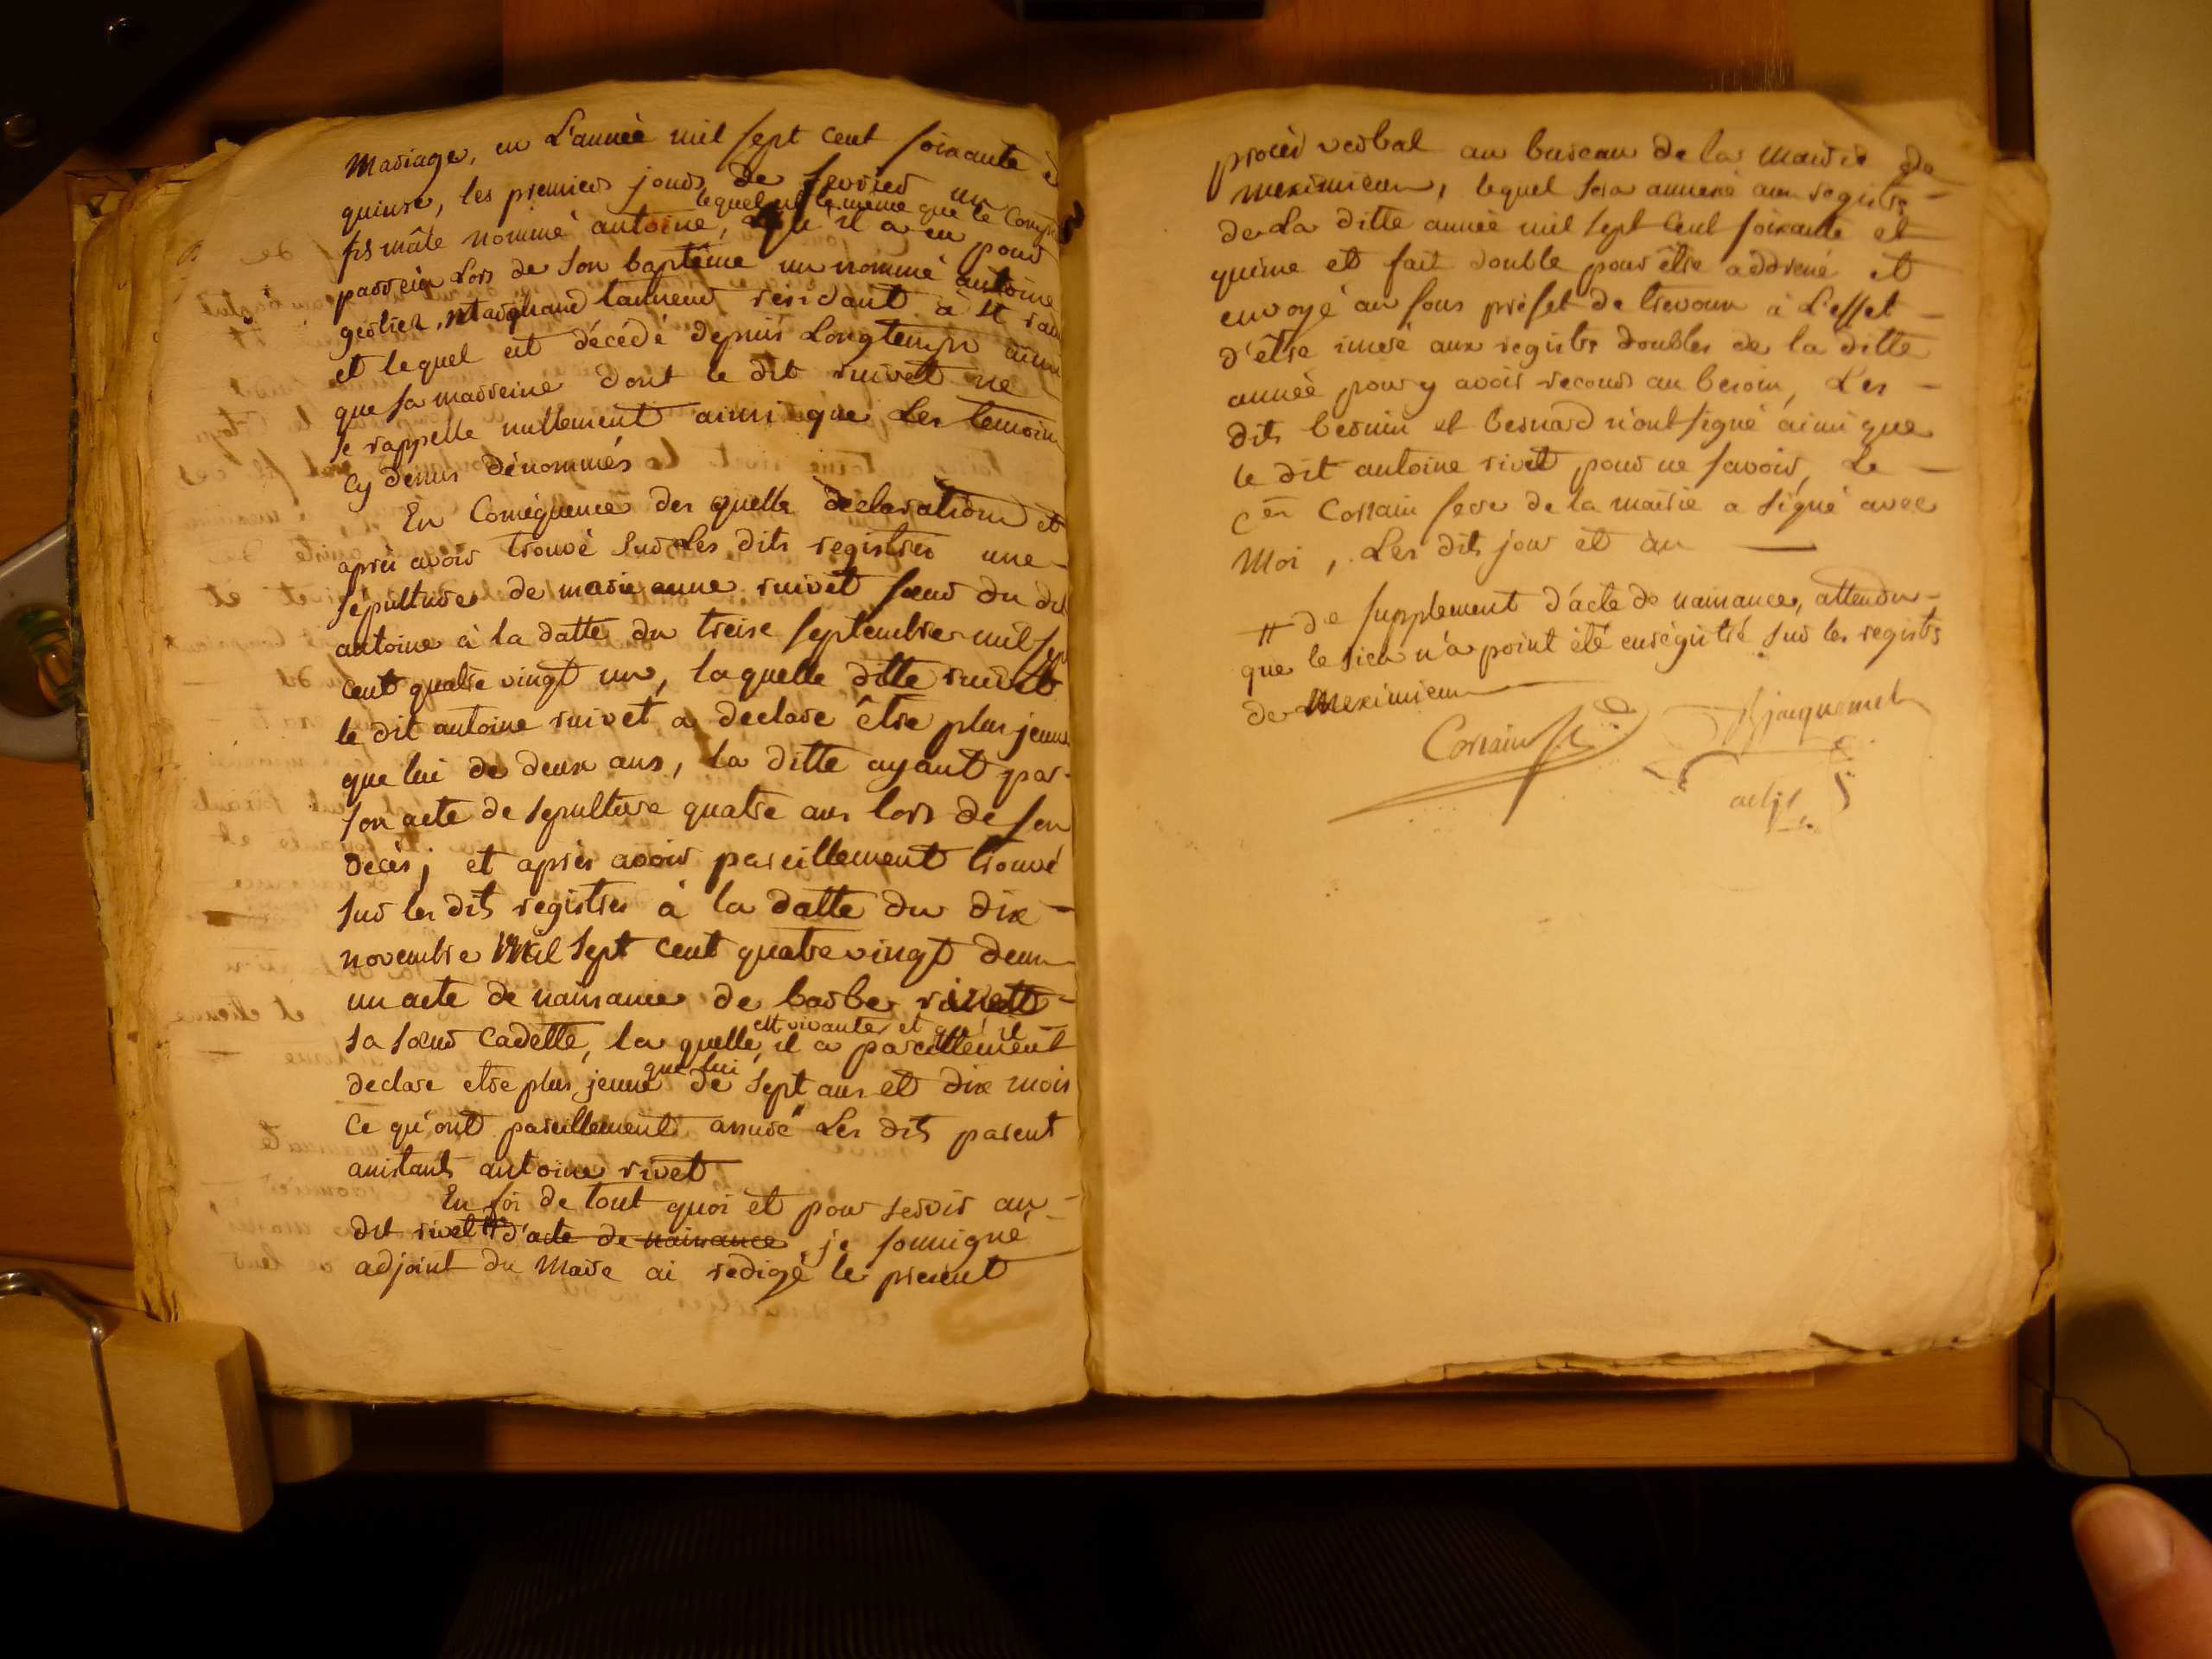 Mariage, en L'année mil sept cent soixante &
quinze, les premiers jours de fevrier un
lequel est le même que le Comp
fis mâle nommé antoine, qu'il a eu pour
parrein Lors de son baptême un nommé antoine
geolier, Marchand tanneur résidant à st ram
et lequel est décédé depuis Longtemps ainsi
que sa marreine dont le dit ruivet ne
se rappelle nullement ainsi que Les temoins
Cy dessus dénommés
En Conséquence des quelle declarations et
après avoir trouvé sur Les dits registres une
sépulture de marie anne ruivet soeur du dit
antoine à la datte du treise septembre mil sept
cent quatre vingt un, laquelle ditte ruivet
le dit antoine ruivet a declare être plus jeune
que lui de deux ans, la ditte ayant par
son acte de sepulture quatre ans lors de son
decès; et après avoir pareillement trouvé
sur les dits registres à la datte du dix
novembre Mil sept cent quatre vingt deux
un acte de naissance de barbe rivett
est vivante et qu'il
sa soeur cadette, la quelle, il a pareillement
que lui
declare etre plus jeune de sept ans et dix mois
Ce qu'ont pareillement assuré Les dits parent
assistants antoine rivet
En foi de tout quoi et pour servir au
dit rivet # d'acte de naissance je soussigné
adjoint du Maire ai redigé le present
procès verbal au bureau de la Mairie de
meximieux, lequel sera annexé aux registre
de La ditte année mil sept cent soixante et
quinze et fait double pour être addressé et
envoyé au sous préfet de trevoux à L'effet
d'être inseré aux registre doubles de la ditte
année pour y avoir recours au besoin, Les
dits bernin et bernard n'ont signé ainsi que
le dit antoine rivet pour ne savoir, Le
Cen Corsain secre de la mairie a signé avec
Moi, Les dits jour et an
# de supplement d'acte de naissance, attendu
que le sien n'a point été enrégistré sur les registrs
de Meximieux
Corsain Jacquemet
adjt